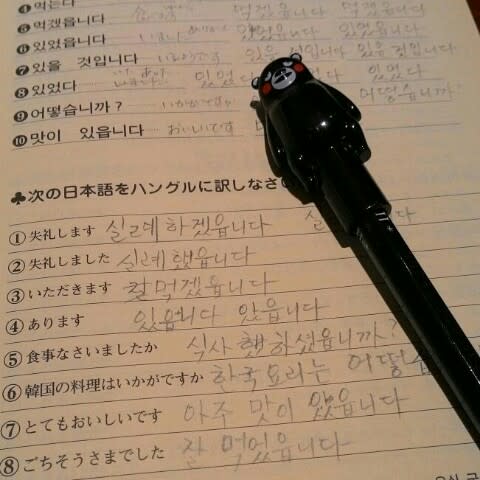 ④ 먹는다
⑤ 먹겠읍니다 먹겠읍니다 먹겠읍니다
⑥ 있었읍니다 있었읍니다 있었읍니다
⑦ 있을 것입니다 있을 것입니다 있을 것입니다
⑧ 있었다 있었다 있었다
⑨ 어떻습니까? いかがですか 어떻습니까
⑩ 맛이 있읍니다 おいしいです
♣次の日本語をハングルに訳しなさ
① 失礼します 실례하겠읍니다
② 失礼しました 실례했읍니다
③ いただきます 잘먹겠읍니다
④ あります 있읍니다 았읍니다
⑤ 食事なさいましたか 식사했하셨읍니까?
⑥ 韓国の料理はいかがですか 한국요리는 어떻습
⑦ とてもおいしいです 아주 맛이 았읍니다
⑧ ごちそうさまでした 잘 먹었읍니다